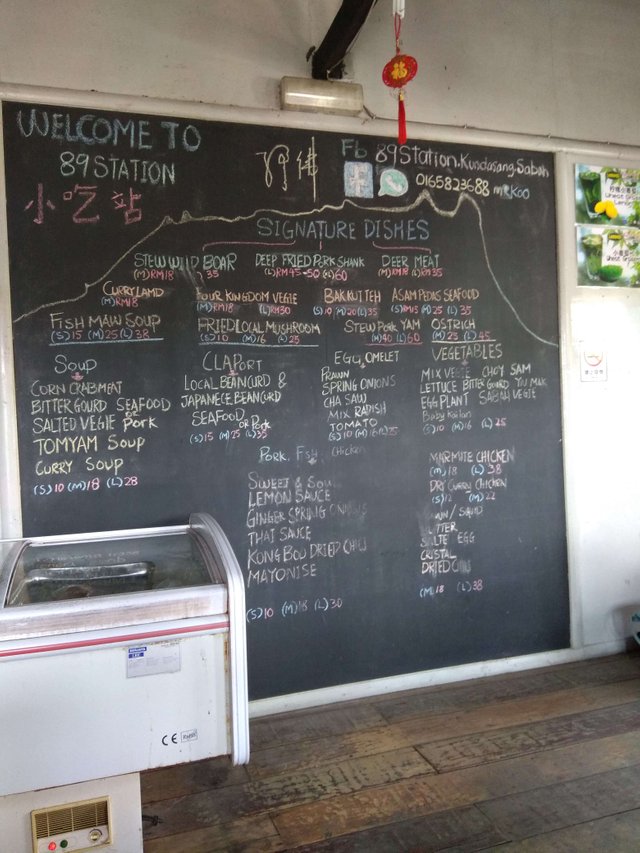 WELCOME TO
89 STATION
小吃站
Fb 89Station.Kundasang.Sabah
0165823688 mr Koo
SIGNATURE DISHES
STEW WILD BOAR
(M)RM18 (L)35
DEEP FRIED PORK SHANK
(L)RM45-50 (L)60
DEER MEAT
(M)RM18 (L)RM35
CURRY LAMB
(M)RM18
FOUR KINGDOM VEGIE
(M)RM18 (L)RM30
BAKKUTTEH
(S)10 (M)20 (L)35
ASAMPEDAS SEAFOOD
(S)RM15 (M)25 (L)35
FISH MAW SOUP
(S)15 (M)25 (L)38
FRIED LOCAL MUSHROOM
(S)10 (M)16 (L)25
STEW PORK YAM
(M)40 (L)60
OSTRICH
(M)25 (L)45
SOUP
CORN CRABMEAT
BITTER GOURD SEAFOOD
SALTED VEGIE or PORK
TOMYAM SOUP
CURRY SOUP
(S)10 (M)18 (L)28
CLAPORT
LOCAL BEANCURD &
JAPANECE BEANCURD
SEAFOOD
or PORK
(S)15 (M)25 (L)35
EGG OMELET
PRAWN
SPRING ONIONS
CHA SAW
MIX RADISH
TOMATO
(S)10 (M)16 (L)25
VEGETABLES
MIX VEGIE CHOY SAM
LETTUCE BITTER GOURD YU MAK
EGG PLANT SABAH VEGIE
Baby Kailan
(S)10 (M)16 (L)25
PORK, FISH, Chicken
SWEET & SOUR
LEMON SAUCE
GINGER SPRING ONIONS
THAI SAUCE
KONG BOU DRIED CHILI
MAYONISE
(S)10 (M)18 (L)30
MARMITE CHICKEN
(M)18 (L)38
DRY CURRY CHICKEN
(S)12 (M)22
SALTE EGG
CRISTAL
DRIED
(M)18 (L)38
CE